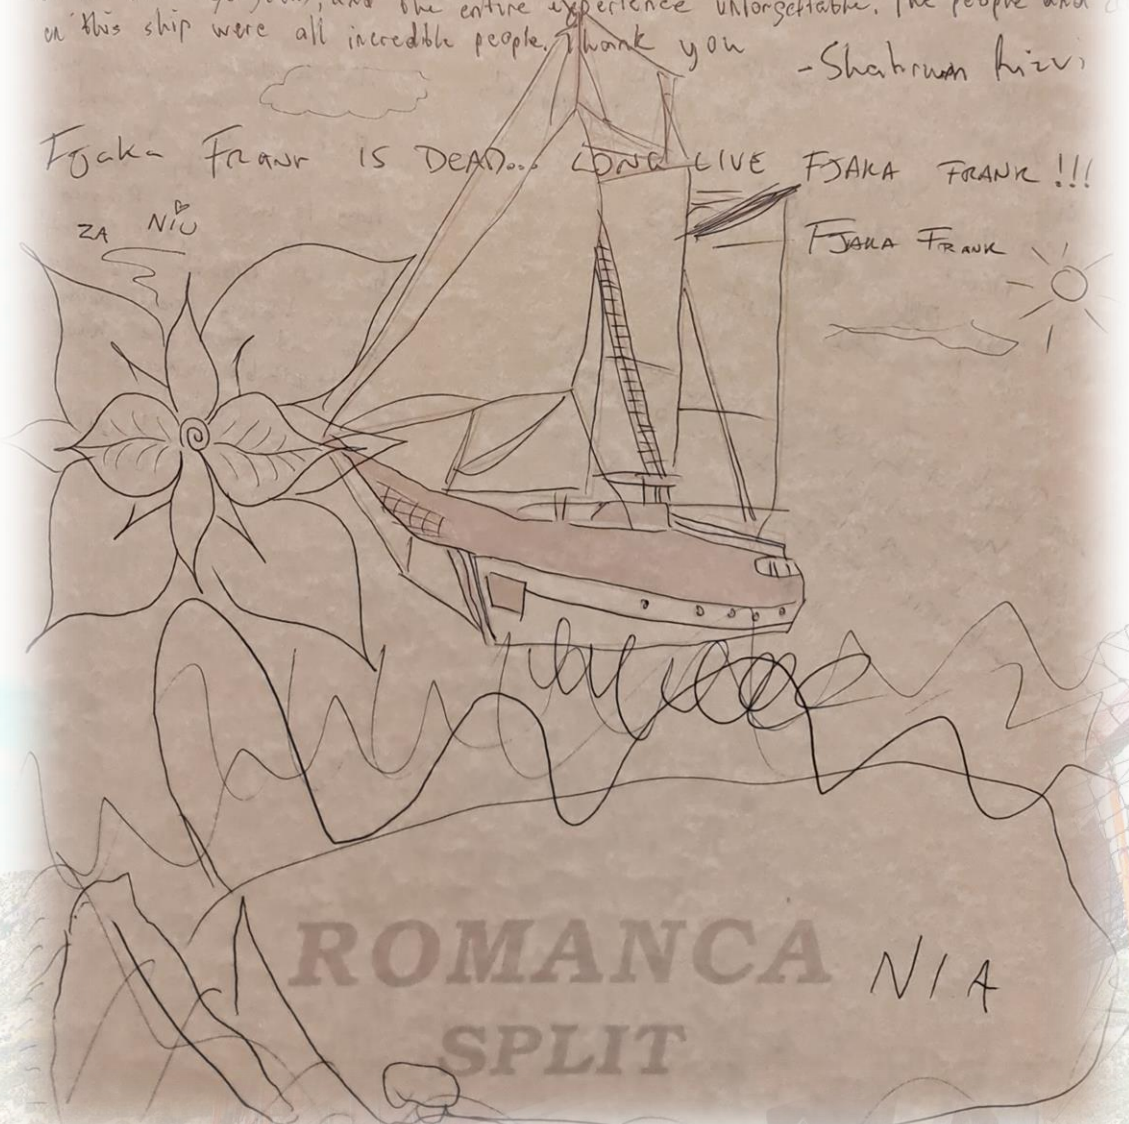 and the entire experience unforgettable. The people and
on this ship were all incredible people. Thank you
-Shahrum Rizvi
Fjaka Frank IS DEAD... LONG LIVE FJAKA FRANK!!!
ZA NIU
FJAKA FRANK
ROMANCA
NIA
SPLIT